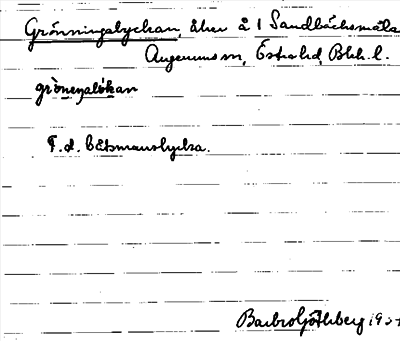 Grönningslyckan, åker å 1 Sandbäcksmåla
Augerums sn, Östra hd, Blek. l.
grönenslökan
F.d. båtsmanslycka.
Barbro Götheberg 193